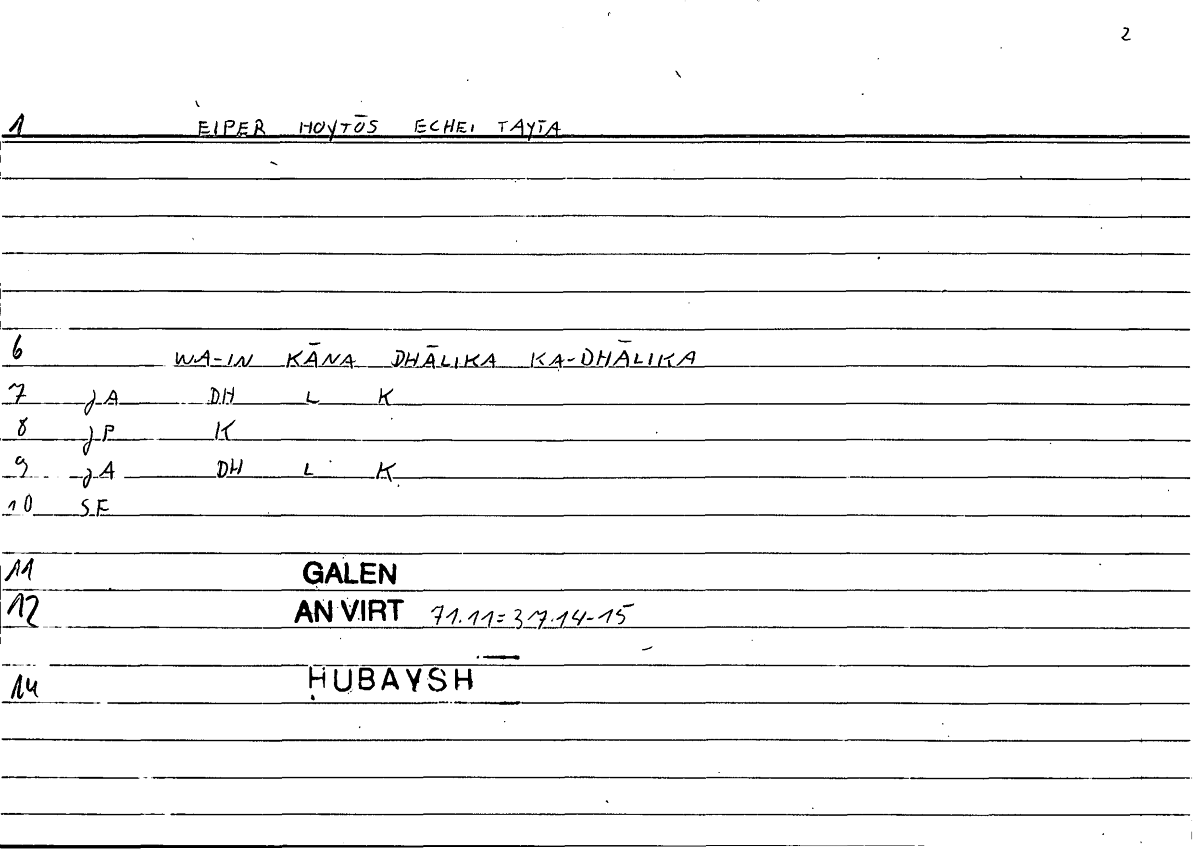 2
1 EIPER HOYTŌS ECHEI TAYTA
6 WA-IN KĀNA DHĀLIKA KA-DHĀLIKA
7 jA DH L K
8 jP K
9 jA DH L K
10 SE
11 GALEN
12 AN VIRT 71.11=37.14-15
14 ḤUBAYSH